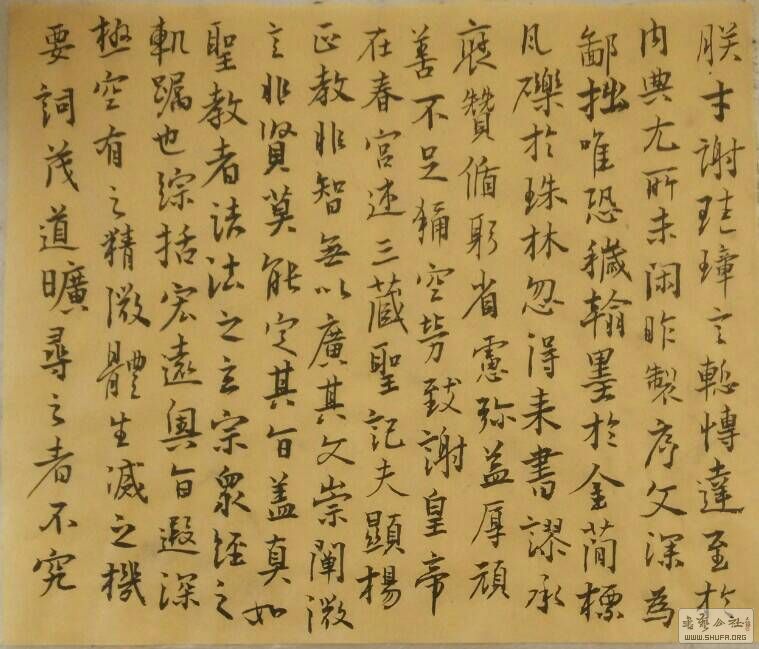 朕才謝珪璋言慙博達至於
内典尤所未閑昨製序文深為
鄙拙唯恐穢翰墨於金簡標
瓦礫於珠林忽得来書謬承
褒贊循躬省慮弥益厚顔
善不足稱空勞致謝皇帝
在春宫述三藏聖記夫顯揚
正教非智無以廣其文崇闡微
言非賢莫能定其旨蓋真如
聖教者諸法之玄宗衆經之
軌躅也綜括宏遠奥旨遐深
極空有之精微體生滅之機
要詞茂道曠尋之者不究
WWW.SHUFA.ORG